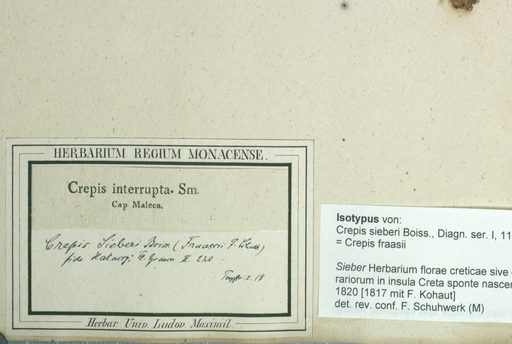 HERBARIUM REGIUM MONACENSE.
Crepis interrupta. Sm.
Cap Maleca.
Crepis Sieberi Boiss. (Fraasii
fide Halacsy Fl. Graeca II. 220
Herbar. Univ. Ludov. Maximil
Isotypus von:
Crepis sieberi Boiss., Diagn. ser. I, 11
= Crepis fraasii
Sieber Herbarium florae creticae sive
rariorum in insula Creta sponte nascer
1820 [1817 mit F. Kohaut]
det. rev. conf. F. Schuhwerk (M)